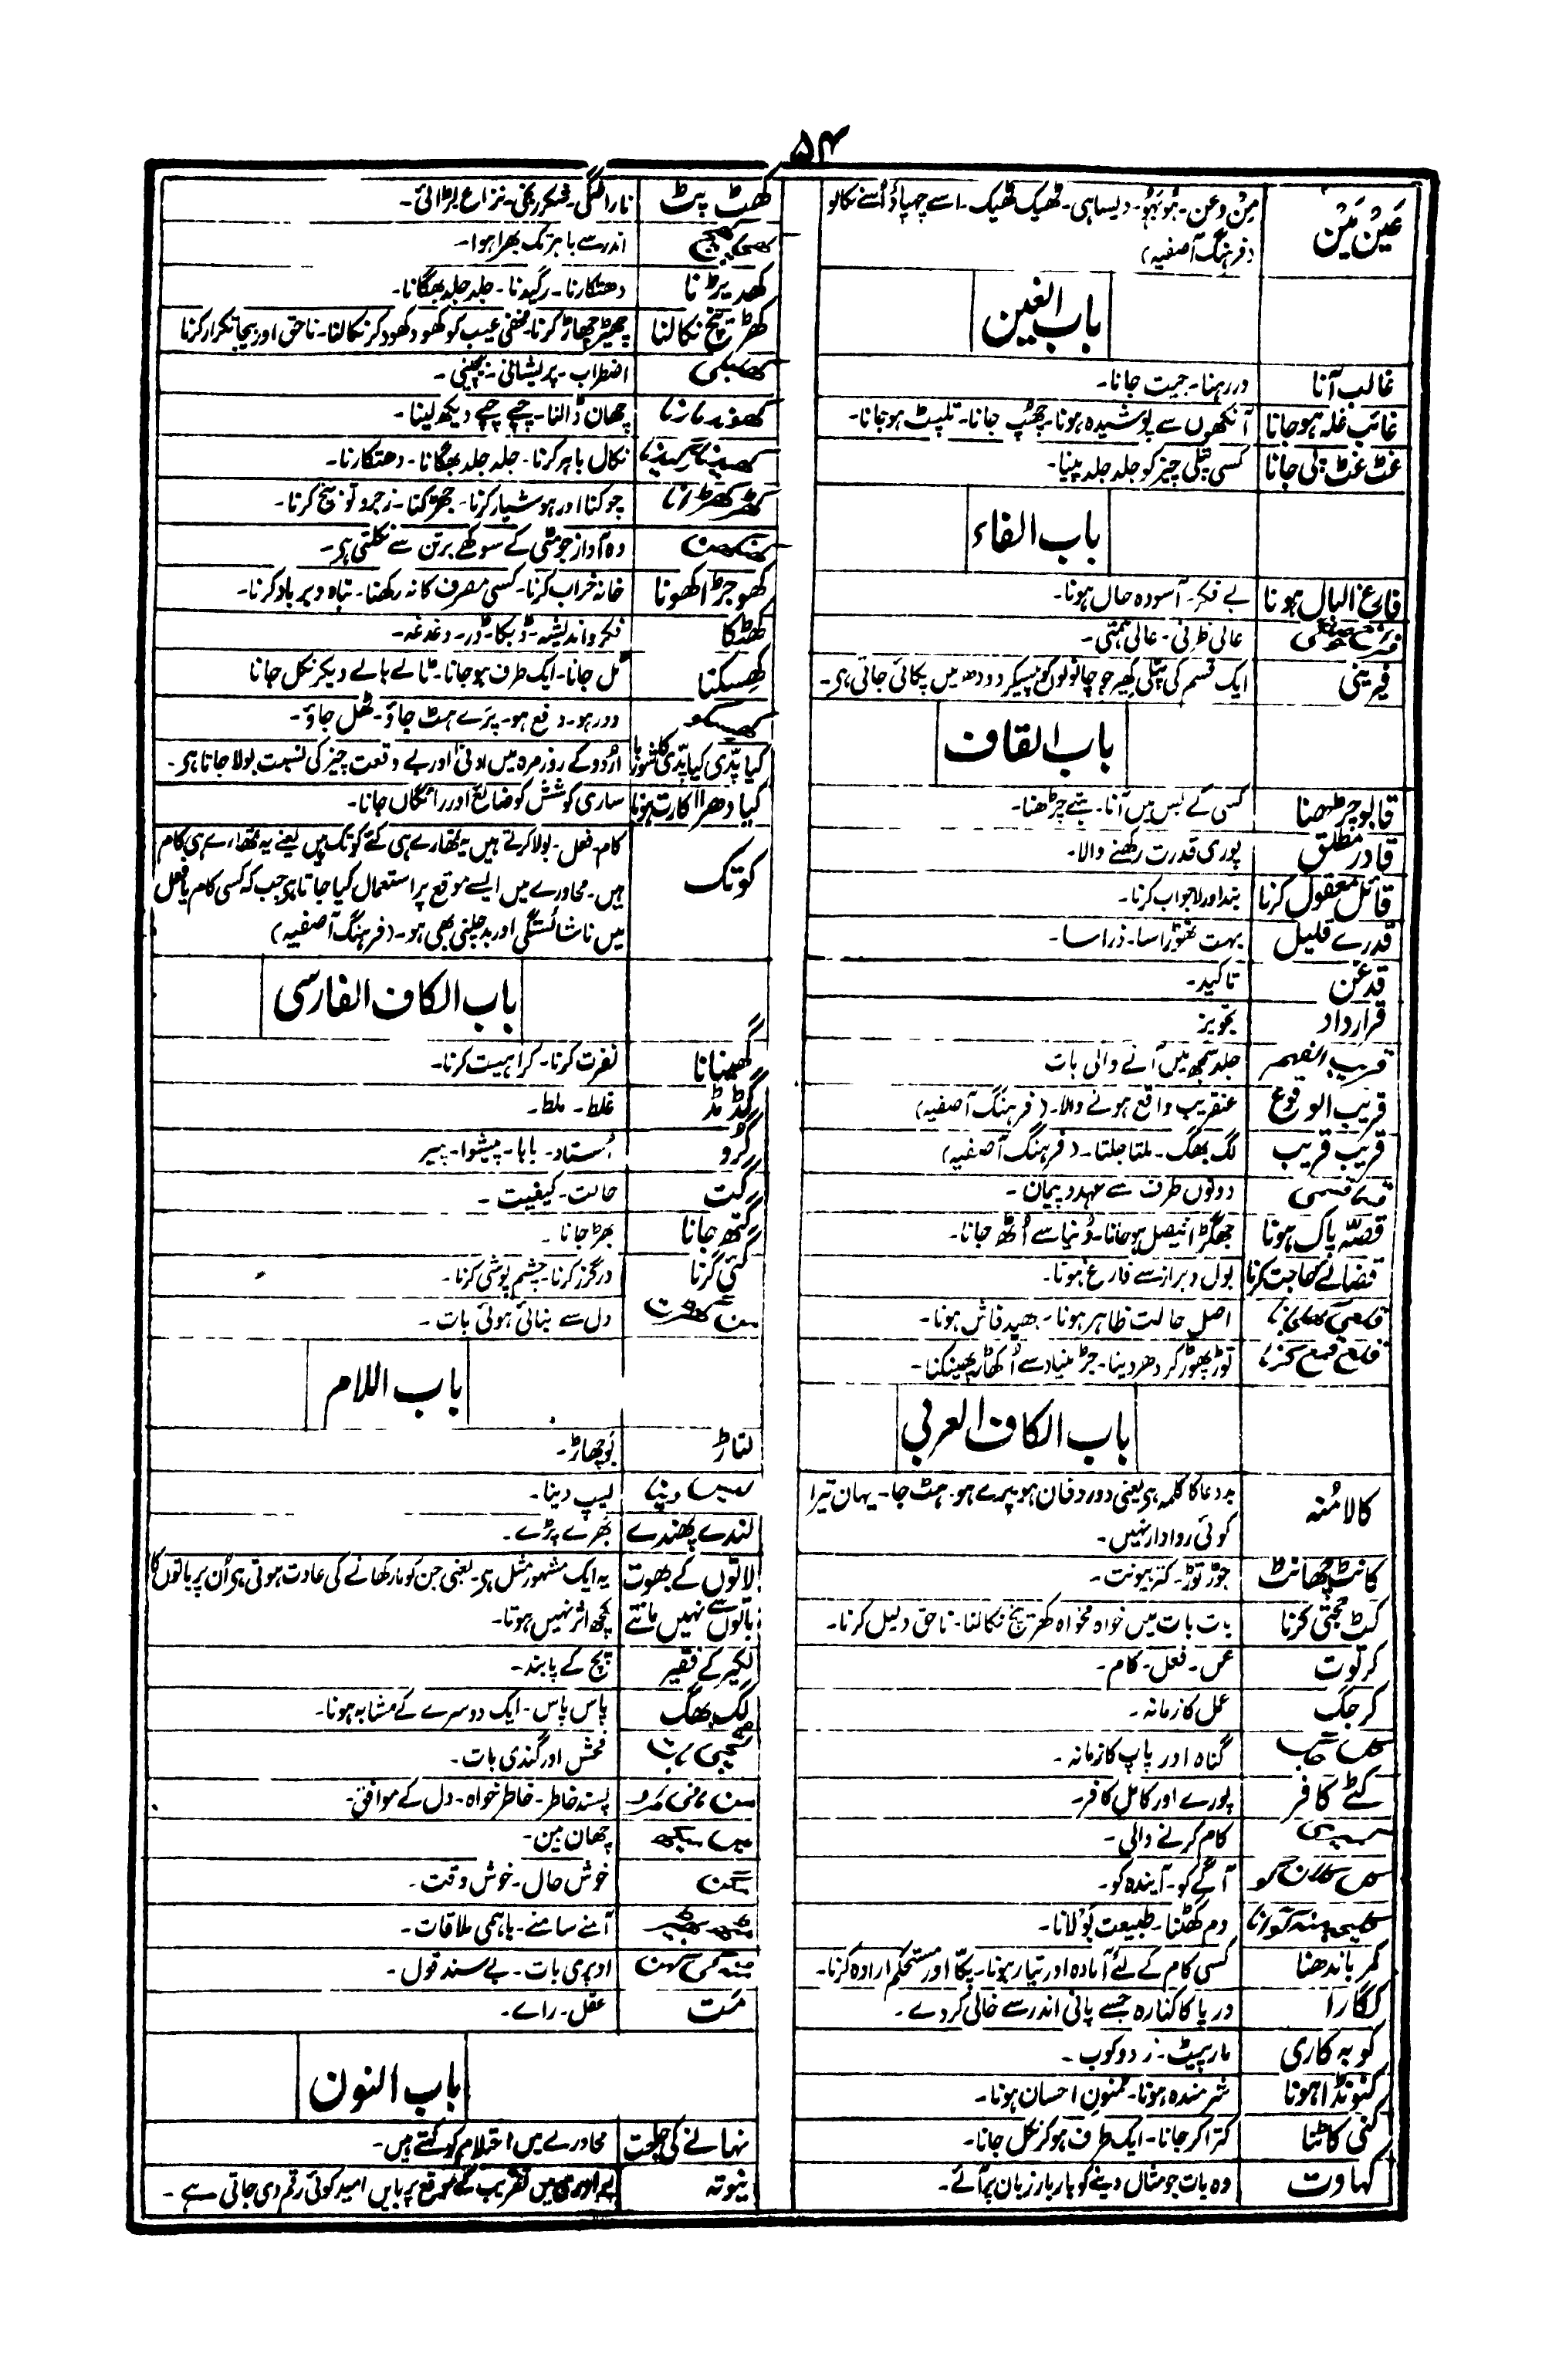 ۵۴
عَیْن مَیْن مِن وعن۔ ہُوبَہُو۔ ویسا ہی۔ ٹھیک ٹھیک۔ اسے چھپاؤ اُسے نکالو
(فرہنگ آصفیہ)
باب الغین
غالب آنا در رہنا۔ جیت جانا۔
غائب غلہ ہو جانا آنکھوں سے پوشیدہ ہونا۔ چھُپ جانا۔ تلپٹ ہو جانا۔
غٹ غٹ پی جانا کسی پتلی چیز کو جلد جلد پینا۔
باب الفاء
فارغ البال ہونا بے فکر۔ آسودہ حال ہونا۔
عالی ظرفی۔ عالی ہمتی۔
فیرینی ایک قسم کی پتلی کھیر جو چانولوں کو پیسکر دودھ میں پکائی جاتی ہی۔
باب القاف
قابو چڑھنا کسی کے بس میں آنا۔ ہتے چڑھنا۔
قادر مطلق پوری قدرت رکھنے والا۔
قائل معقول کرنا بند اور لاجواب کرنا۔
قدرے قلیل بہت تھوڑا سا۔ ذرا سا۔
قدغن تاکید۔
قرارداد تجویز
قریب الفہم جلد سمجھ میں آنے والی بات
قریب الوقوع عنقریب واقع ہونے والا۔ (فرہنگ آصفیہ)
قریب قریب لگ بھگ۔ ملتا جلتا۔ (فرہنگ آصفیہ)
قسما قسمی دونوں طرف سے عہد و پیمان۔
قصّہ پاک ہونا جھگڑا فیصل ہو جانا۔ دُنیا سے اُٹھ جانا۔
قضائے حاجت کرنا بول و براز سے فارغ ہونا۔
قلعی کھلنا اصل حالت ظاہر ہونا۔ بھید فاش ہونا۔
قلع قمع کرنا توڑ پھوڑ کر دھر دینا۔ جڑ بنیاد سے اُکھاڑ پھینکنا۔
باب الکاف العربی
کالا مُنہ بددعا کا کلمہ ہی یعنی دور دفان ہو پرے ہو۔ ہٹ جا۔ یہان تیرا
کوئی روادار نہیں۔
کانٹ چھانٹ جوڑ توڑ۔ کتر بیونت۔
کٹ حجتی کرنا بات بات میں خواہ مخواہ کھڑ پیچ نکالنا۔ ناحق دلیل کرنا۔
کرتوت عمل۔ فعل۔ کام۔
کرجگ عمل کا زمانہ۔
کل جگ گناہ اور پاپ کا زمانہ۔
کٹے کافر پورے اور کامل کافر۔
کام کرنے والی۔
کل کلان کو آگے کو۔ آیندہ کو۔
کلیجہ منہ کو آنا دم گھٹنا۔ طبیعت بَولانا۔
کمر باندھنا کسی کام کے لئے آمادہ اور تیار ہونا۔ پکّا اور مستحکم ارادہ کرنا۔
کگارا دریا کا کنارہ جسے پانی اندر سے خالی کر دے۔
کوبہ کاری مارپیٹ۔ زد وکوب۔
کنونڈا ہونا شرمندہ ہونا۔ ممنون احسان ہونا۔
کنی کاٹنا کترا کر جانا۔ ایک طرف ہو کر نکل جانا۔
کہاوت وہ بات جو مثال دینے کو بار بار زبان پر آئے۔
کھٹ پٹ ناراضگی۔ شکر رنجی۔ نزاع لڑائی۔
کھچا کھچ اندر سے باہر تک بھرا ہوا۔
کھدیڑنا دھتکارنا۔ رگیدنا۔ جلد جلد بھگانا۔
کھڑ پیچ نکالنا چھیڑ چھاڑ کرنا۔ مخفی عیب کو کھود کھود کر نکالنا۔ ناحق اور بیجا تکرار کرنا
کھلبلی اضطراب۔ پریشانی۔ بیچینی۔
کھوند مارنا چھان ڈالنا۔ چپے چپے دیکھ لینا۔
نکال باہر کرنا۔ جلد جلد بھگانا۔ دھتکارنا۔
کھڑ کھڑانا چوکنا اور ہوشیار کرنا۔ جھڑکنا۔ زجر و توبیخ کرنا۔
کھنکھن وہ آواز جو مٹی کے سوکھے برتن سے نکلتی ہی۔
کھوجڑا کھونا خانہ خراب کرنا۔ کسی مصرف کا نہ رکھنا۔ تباہ و برباد کرنا۔
کھٹکا فکر و اندیشہ۔ دُبکا۔ ڈر۔ دغدغہ۔
کھِسکنا ٹل جانا۔ ایک طرف ہو جانا۔ ٹالے بالے دیکر نکل جانا
کھسکو دور ہو۔ دفع ہو۔ پَرے ہٹ جاؤ۔ ٹھل جاؤ۔
کیا پدّی کیا پدّی کا شوربا اُردو کے روزمرہ میں ادنیٰ اور بے وقعت چیز کی نسبت بولا جاتا ہی۔
کیا دھرا اکارت ہونا ساری کوشش کو ضائع اور رائگاں جانا۔
کوتک کام۔ فعل۔ بولا کرتے ہیں یہ تمھارے ہی کئے کوتک ہیں یعنے یہ تمھارے ہی کام
ہیں۔ محاورے میں ایسے موقع پر استعمال کیا جاتا ہی جب کہ کسی کام یا فعل
میں ناشائستگی اور بدچلنی بھی ہو۔ (فرہنگ آصفیہ)
باب الکاف الفارسی
گھینانا نفرت کرنا۔ کراہیت کرنا۔
گڈ مڈ غلط۔ ملط۔
گُرو اُستاد۔ بابا۔ پیشوا۔ پیر
گت حالت۔ کیفیت۔
گتھ جانا بھڑ جانا۔
گئی کرنا درگزر کرنا۔ چشم پوشی کرنا۔
من گھڑت دل سے بنائی ہوئی بات۔
باب اللام
لتاڑ بوچھاڑ۔
لیسا دینا لیپ دینا۔
لندے پھندے بھرے پڑے۔
لاتوں کے بھوت یہ ایک مشہور مثل ہی۔ یعنی جن کو مار کھانے کی عادت ہوتی ہی اُن پر باتوں کا
باتوں سے نہیں مانتے کچھ اثر نہیں ہوتا۔
لکیر کے فقیر پیچ کے پابند۔
لگ بھگ پاس پاس۔ ایک دوسرے کے مشابہ ہونا۔
فحش اور گندی بات۔
من مانی مراد پسند خاطر۔ خاطر خواہ۔ دل کے موافق۔
مین میکھ چھان بین۔
مگن خوش حال۔ خوش وقت۔
مٹھ بھیڑ آمنے سامنے۔ باہمی ملاقات۔
اوپری بات۔ بے سند قول۔
مَت عقل۔ رائے۔
باب النون
نہانے کی حاجت محاورے میں احتلام کو کہتے ہیں۔
نیوتہ برادری میں تقریب کے موقع پر بایں امید کوئی رقم دی جاتی سے۔